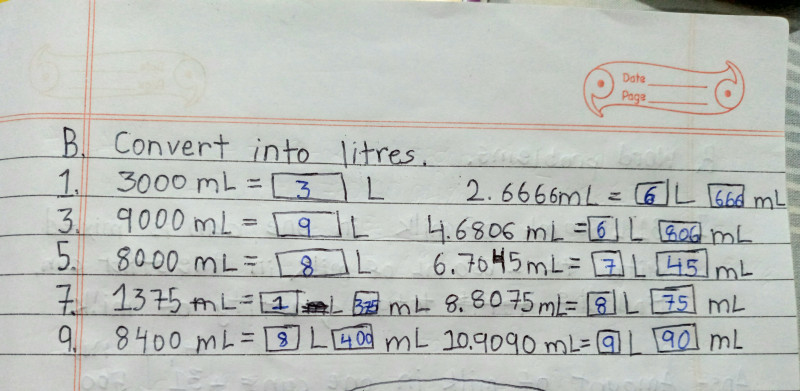 Date
Page
B. Convert into litres.
1. 3000 mL = 3 L 2. 6666mL = 6 L 666 mL
3. 9000 mL = 9 L 4. 6806 mL = 6 L 806 mL
5. 8000 mL = 8 L 6. 7045mL = 7 L 45 mL
7. 1375 mL = 1 L 375 mL 8. 8075mL = 8 L 75 mL
9. 8400 mL = 8 L 400 mL 10. 9090 mL = 9 L 90 mL